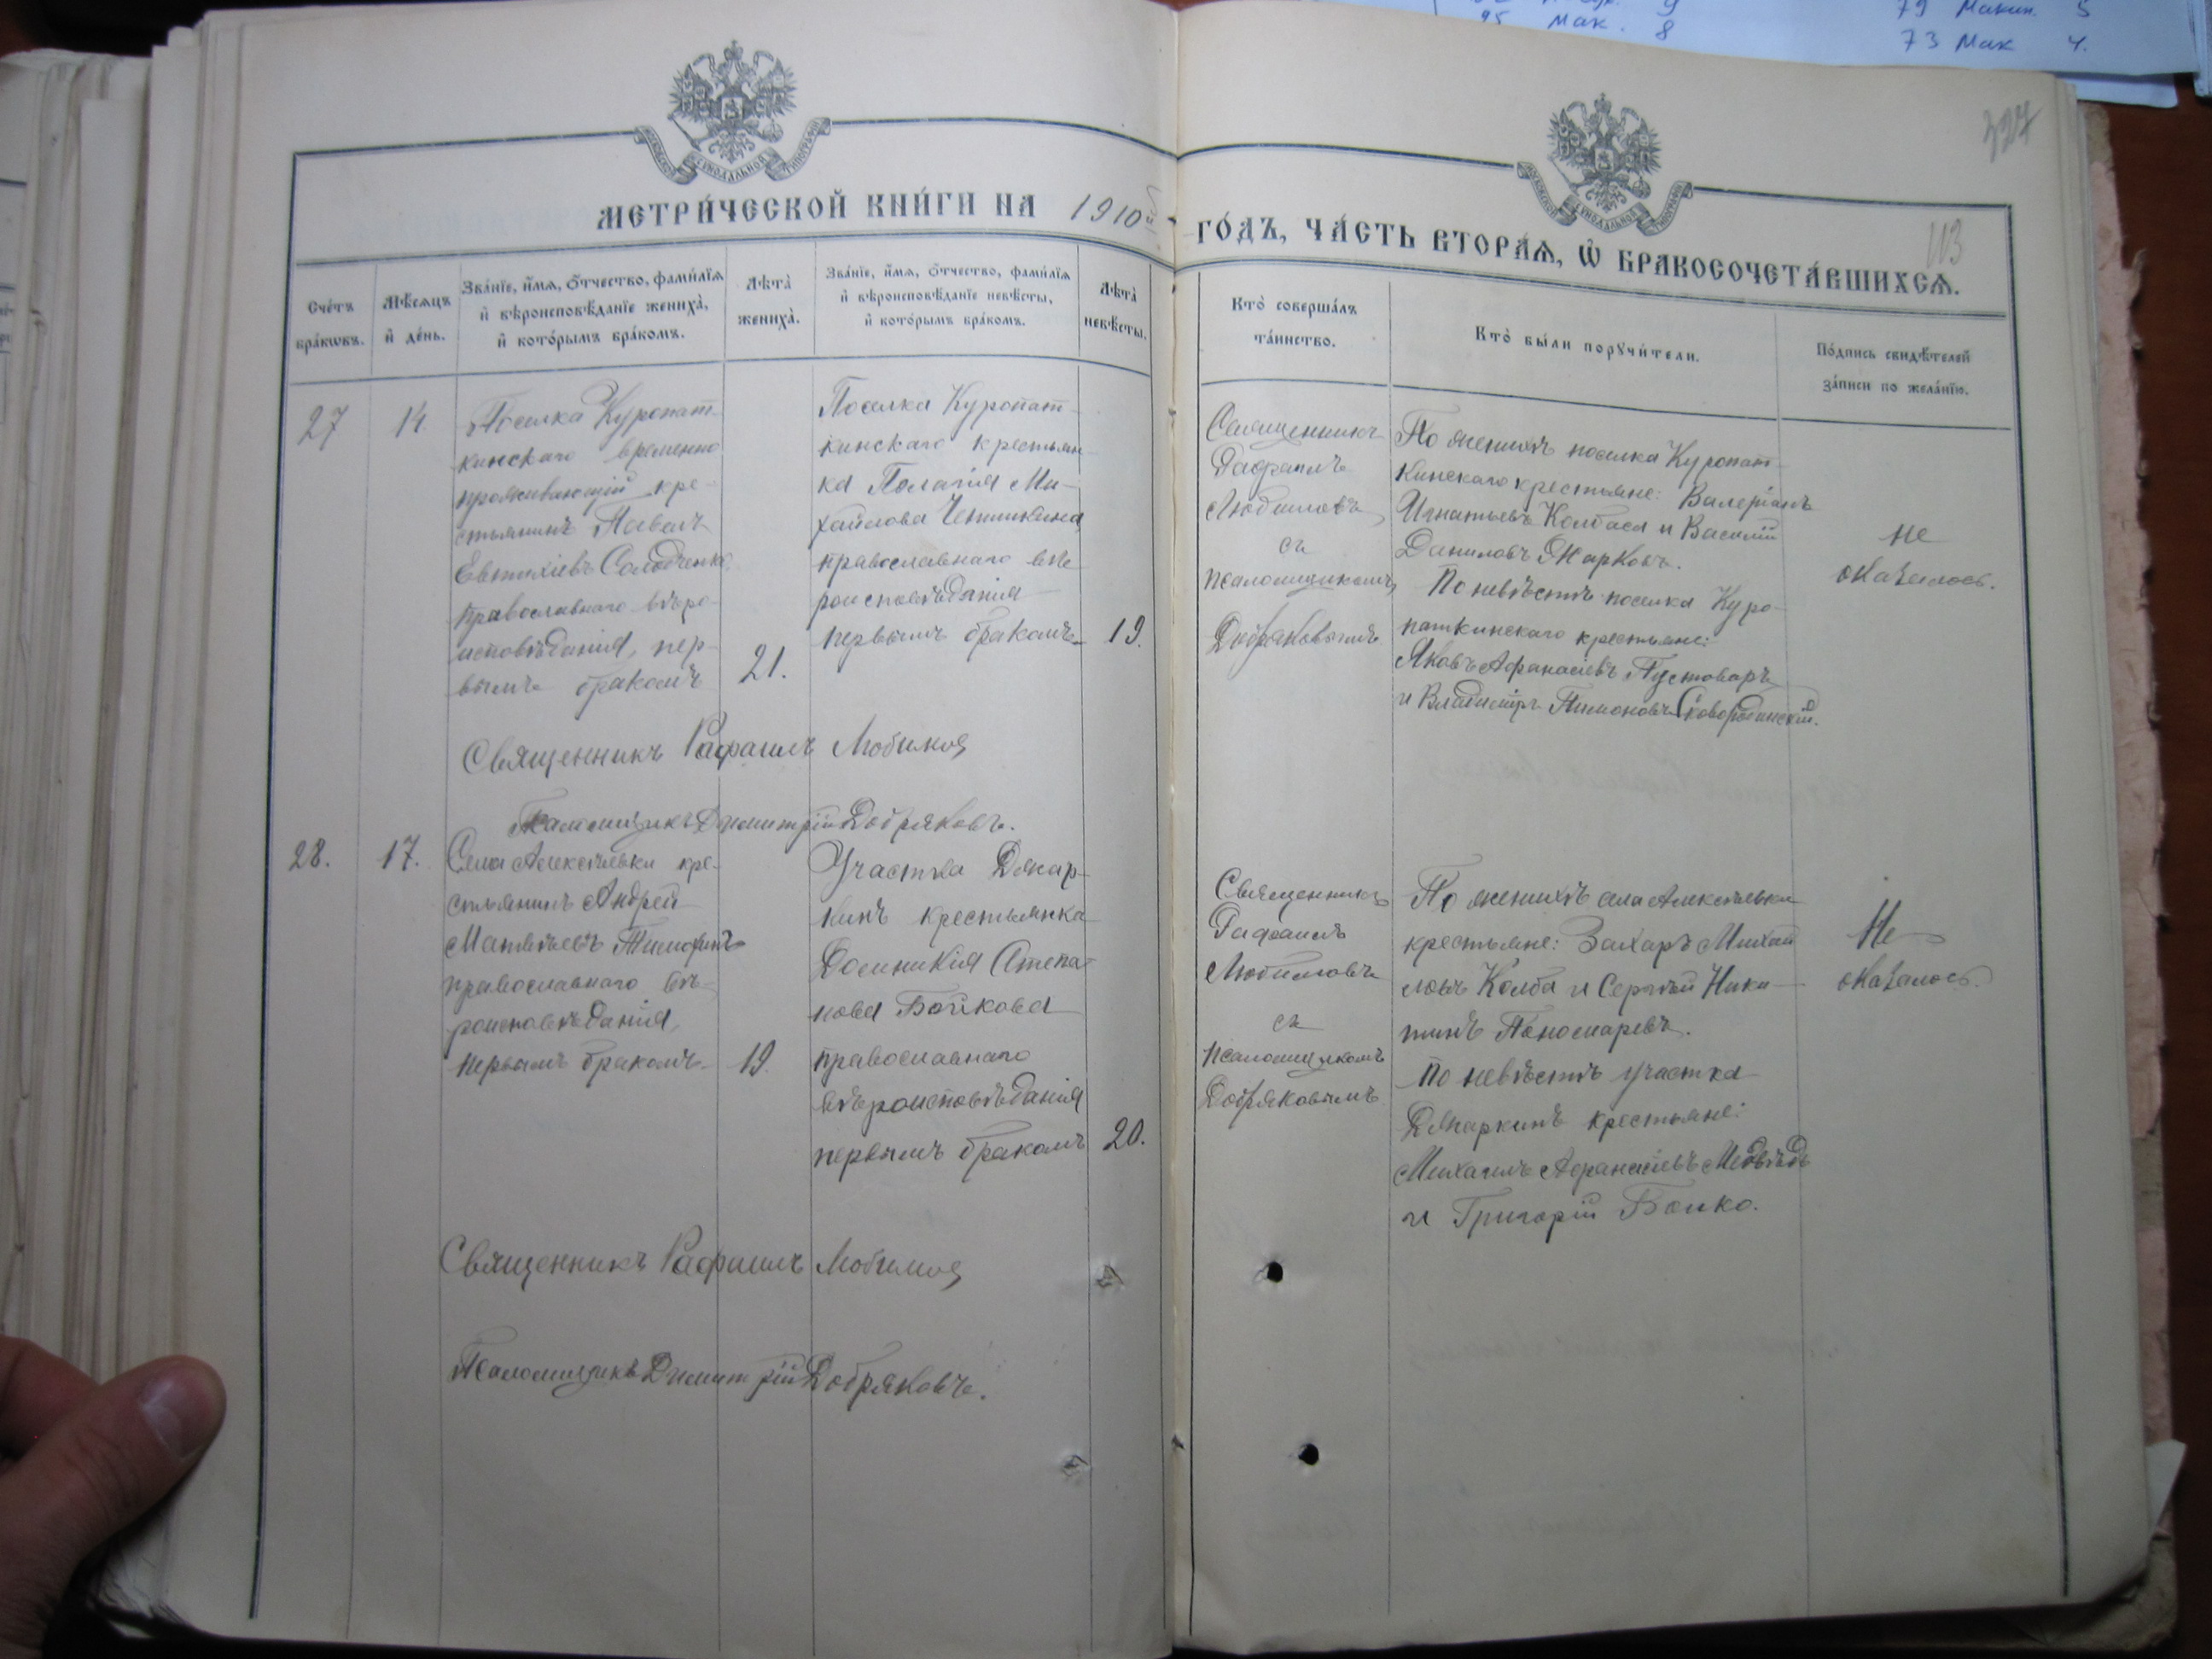 95 Мак. 8
79 Макин. 5
73 Мак 4.
327
113
МОСКОВСКОЙ СѴНОДАЛЬНОЙ ТИПОГРАФІИ
МОСКОВСКОЙ СѴНОДАЛЬНОЙ ТИПОГРАФІИ
МЕТРИ́ЧЕСКОЙ КНИ́ГИ НА 1910й
ГО́ДЪ, ЧА́СТЬ ВТОРА́Ѧ, Ѽ БРАКОСОЧЕТА́ВШИХСѦ.
Сче́тъ
бра́кѡвъ.
Мѣ́сѧцъ
и҆ де́нь.
Зва́нїе, и҆́мѧ, ѻ҆́тчество, фами́лїѧ
и҆ вѣроисповѣ́данїе жениха̀,
и҆ кото́рымъ бра́комъ.
Лѣта̀
жениха̀.
Зва́нїе, и҆́мѧ, ѻ҆́тчество, фами́лїѧ
и҆ вѣроисповѣ́данїе невѣ́сты,
и҆ кото́рымъ бра́комъ.
Лѣта̀
невѣ́сты.
Кто̀ соверша́лъ
та́инство.
Кто̀ бы́ли порꙋчи́тели.
По́дпись свидѣ́телей
за́писи по жела́нїю.
27
14.
Поселка Куропат-
кинскаго временно
проживающій кре-
стьянинъ Павелъ
Евтихіевъ Солодченко,
православнаго вѣро-
исповѣданія, пер-
вымъ бракомъ
21.
Поселка Куропат-
кинскаго крестьян-
ка Пелагія Ми-
хайлова
православнаго вѣ
роисповѣданія
первымъ бракомъ
19.
Священникъ
Рафаилъ
Любимовъ
съ
псаломщикомъ
Добряковымъ
По женихѣ поселка Куропат-
кинскаго крестьяне: Валеріанъ
Игнатьевъ Колбаса и Василій
Даниловъ Жарковъ.
По невѣстѣ поселка Куро-
паткинскаго крестьяне:
Яковъ Афанасіевъ Пустоваръ
и Владиміръ Тимоновъ Сковородинскій.
не
оказалось.
Священникъ Рафаилъ Любимов
Псаломщикъ Димитрій Добряковъ.
28.
17.
Села Алексѣевки кре-
стьянинъ Андрей
Матвѣевъ Тимофинъ
православнаго вѣ-
роисповѣданія,
первымъ бракомъ
19.
Участка Джар-
кинъ крестьянка
Домникія Степа-
нова Бойкова
православнаго
вѣроисповѣданія
первымъ бракомъ
20.
Священникъ
Рафаилъ
Любимовъ
съ
псаломщикомъ
Добряковымъ
По женихѣ села Алексѣевки
крестьяне: Захаръ Михай
ловъ Колба и Сергѣй Ники-
тинъ Пономаревъ.
По невѣстѣ участка
Джаркинъ крестьяне:
Михаилъ Афанасіевъ Медвѣдь
и Григорій Бойко.
Не
оказалось.
Священникъ Рафаилъ Любимов
Псаломщикъ Димитрій Добряковъ.